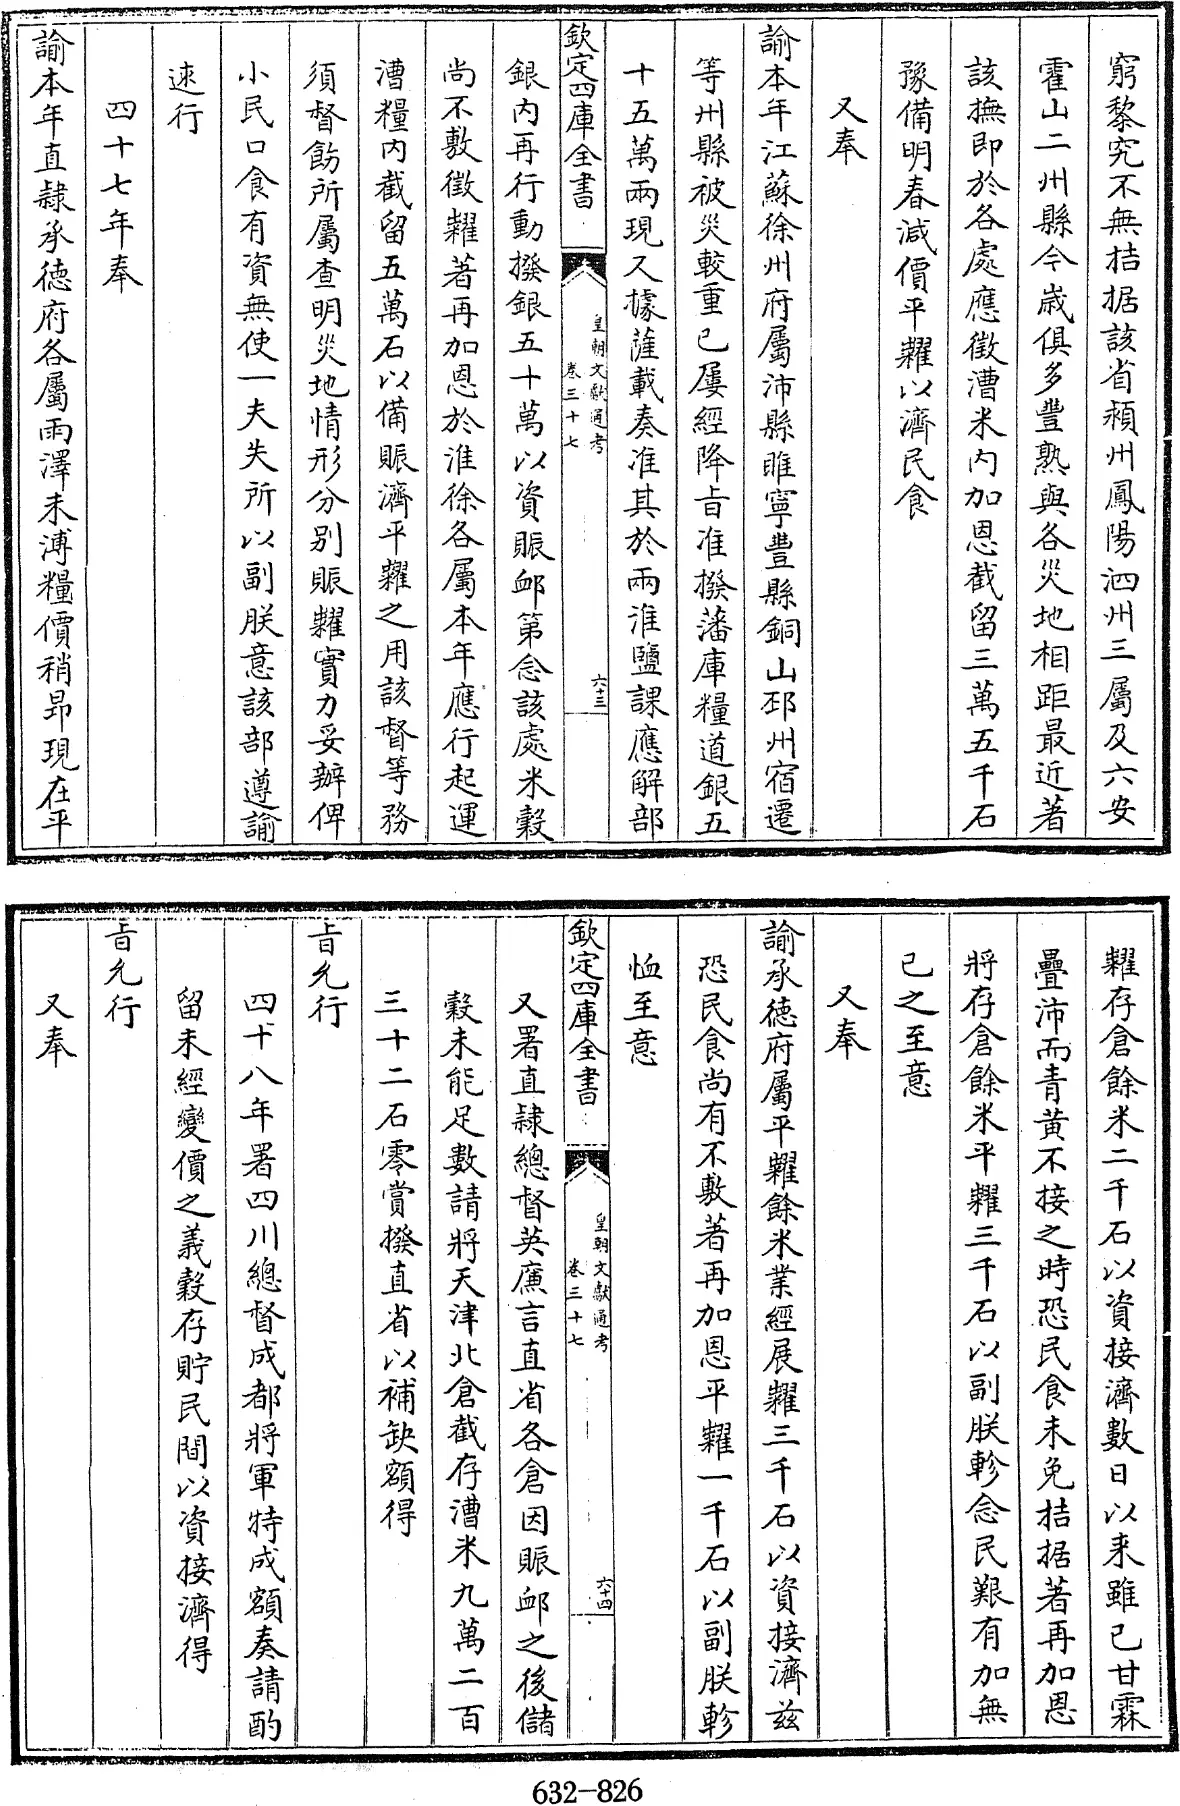 窮黎究不無拮据該省潁州鳳陽泗州三屬及六安
霍山二州縣今歲俱多豐熟與各災地相距最近著
該撫即於各處應徵漕米内加恩截留三萬五千石
豫備明春減價平糶以濟民食
又奉
諭本年江蘇徐州府屬沛縣睢寧豐縣銅山邳州宿遷
等州縣被災較重已屢經降旨准撥藩庫糧道銀五
十五萬兩現又據薩載奏准其於兩淮鹽課應解部
欽定四庫全書
皇朝文獻通考
卷三十七
六十三
銀内再行動撥銀五十萬以資賑卹第念該處米穀
尚不敷徵糶著再加恩於淮徐各屬本年應行起運
漕糧内截留五萬石以備賑濟平糶之用該督等務
須督飭所屬查明災地情形分别賑糶實力妥辦俾
小民口食有資無使一夫失所以副朕意該部遵諭
速行
四十七年奉
諭本年直隸承德府各屬雨澤未溥糧價稍昂現在平
糶存倉餘米二千石以資接濟數日以来雖已甘霖
疊沛而青黄不接之時恐民食未免拮据著再加恩
將存倉餘米平糶三千石以副朕軫念民艱有加無
已之至意
又奉
諭承德府屬平糶餘米業經展糶三千石以資接濟茲
恐民食尚有不敷著再加恩平糶一千石以副朕軫
恤至意
欽定四庫全書
皇朝文獻通考
卷三十七
六十四
又署直隸總督英廉言直省各倉因賑卹之後儲
穀未能足數請將天津北倉截存漕米九萬二百
三十二石零賞撥直省以補缺額得
旨允行
四十八年署四川總督成都將軍特成額奏請酌
留未經變價之義穀存貯民間以資接濟得
旨允行
又奉
632-826